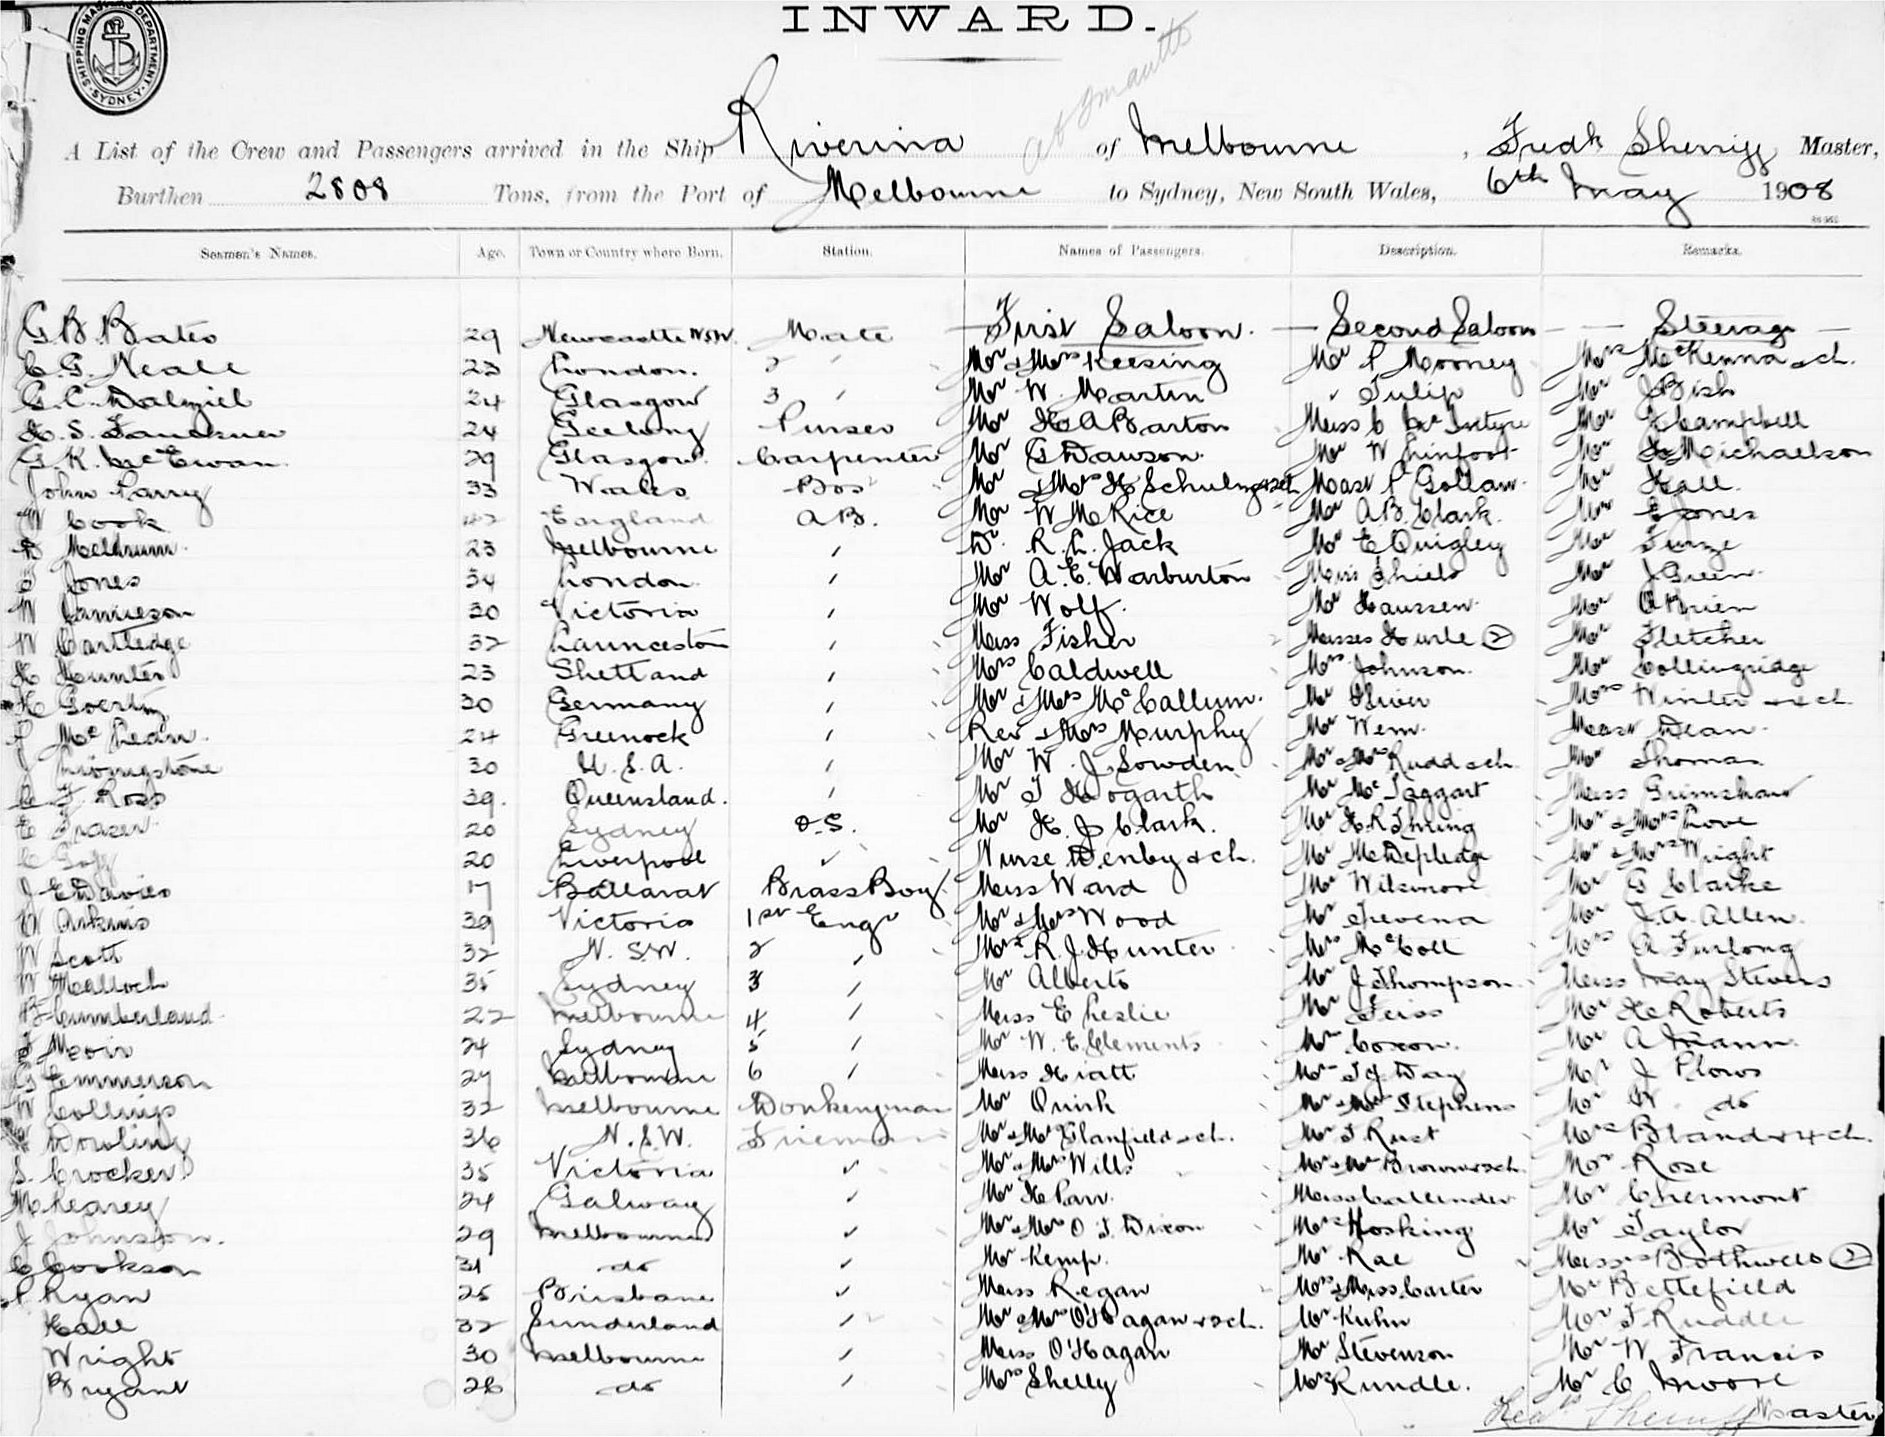 INWARD.
SHIPPING MASTERS DEPARTMENT SYDNEY
A List of the Crew and Passengers arrived in the Ship Riverina of Melbourne, Fredk Sherriff Master,
Burthen 2808 Tons, from the Port of Melbourne to Sydney, New South Wales, 6th May 1908
Seamen's Names. Age. Town or Country where Born. Station. Names of Passengers. Description. Remarks.
G B Bates 29 Newcastle NSW. Mate First Saloon. Second Saloon Steerage
C. G. Neale 23 London. 2 " Mr & Mrs Keesing Mr P Mooney Mrs McKenna & ch.
G. C. Dalziel 24 Glasgow 3 " Mr W. Martin " Tulip Mr J Bish
H. S. Faulkner 24 Geelong Purser Mr H A Barton Miss C McIntyre Mr Campbell
G. K. McEwan. 29 Glasgow. Carpenter Mr G Dawson. Mr W Chinfoot Mr Michaelson
John Parry 33 Wales Bos Mr & Mrs H Schulz & 2ch Mast P Gollan. Mr Hall.
W Cook 42 England AB. Mr W McRice Mr A B. Clark. Mr Jones
Meldrum. 23 Melbourne " Dr. R. L. Jack Mr E Quigley Mr Furze
Jones 34 London. " Mr A. E. Warburton Miss Shiels Mr J Green.
W Jamieson 30 Victoria " Mr Wolf. Mr Haussen. Mr O'Brien
W Cartledge 32 Launceston " Miss Fisher Misses Hurle (2) Mr Fletcher
H Hunter 23 Shetland " Mrs Caldwell Mrs Johnson. Mr Collingridge
H Goerting 30 Germany " Mr & Mrs McCallum. Mr Mrs Winter & ch.
P McLean. 24 Greenock " Rev & Mrs Murphy Mr Wem. Mast Dean.
J Livingstone 30 U. S. A. " Mr W. J Sowden Mr & Mrs Rudd & ch. Mr Thomas
Ross 39. Queensland. " Mr T Hogarth Mr McTaggart Miss Grimshaw
E Frazer 20 Sydney O.S. Mr H. J Clark. Mr H R Thring Mr & Mrs Love
C Goff 20 Liverpool " Nurse Denby & ch. Mr McDepledge Mr & Mrs Wright
J E Davies 17 Ballarat Brass Boy. Miss Ward Mr Wilsmore Mr G Clarke
W Atkins 39 Victoria 1st Engr Mr & Mrs Wood Mr Trevena Mr J. A. Allen.
W Scott 32 N. S.W. 2 " Mrs R. J. Hunter Mrs McColl Mrs A Furlong
W Malloch 35 Sydney 3 " Mr Alberts Mr J Thompson. Miss May Stevens
B Cumberland 22 Melbourne 4 " Miss E Leslie Mr Feiss Mr H Roberts
J Moir 24 Sydney 5 " Mr W. E. Clements Mr Coxon. Mr A Mann.
G Emmerson 27 Melbourne 6 " Miss Hiatt Mr T J Day Mr J Plows
W Collings 32 Melbourne Donkeyman Mr Quirk Mr & Mrs Stephens Mr W. do
Dowling 36 N. S.W. Fireman Mr & Mrs Clanfield & ch. Mr T Rust Mrs Bland & 4 ch.
S. Crocker 35 Victoria " Mr & Mrs Wills Mr & Mrs Brown & 2ch. Mr Rose
M Kearey 24 Galway " Mr H Parr. Miss Callender Mr Chermont
J Johnston. 29 Melbourne " Mr & Mrs O. T. Dixon Mrs Hosking Mr Taylor
C Cookson 31 do " Mr Kemp. Mr Rae Misses Bothwells (2)
P Ryan 25 Brisbane " Miss Regan Mrs & Miss Carter Mr Bettefield
Hall 32 Sunderland " Mr & Mrs O'Hagan & 2ch. Mr Kuhn Mr F Ruddle
Wright 30 Melbourne " Miss O'Hagan Mr Stevenson Mr W Francis
Bryant 26 do " Mrs Shelly Mrs Rundle. Mr C Moore
Fred Sherriff Master